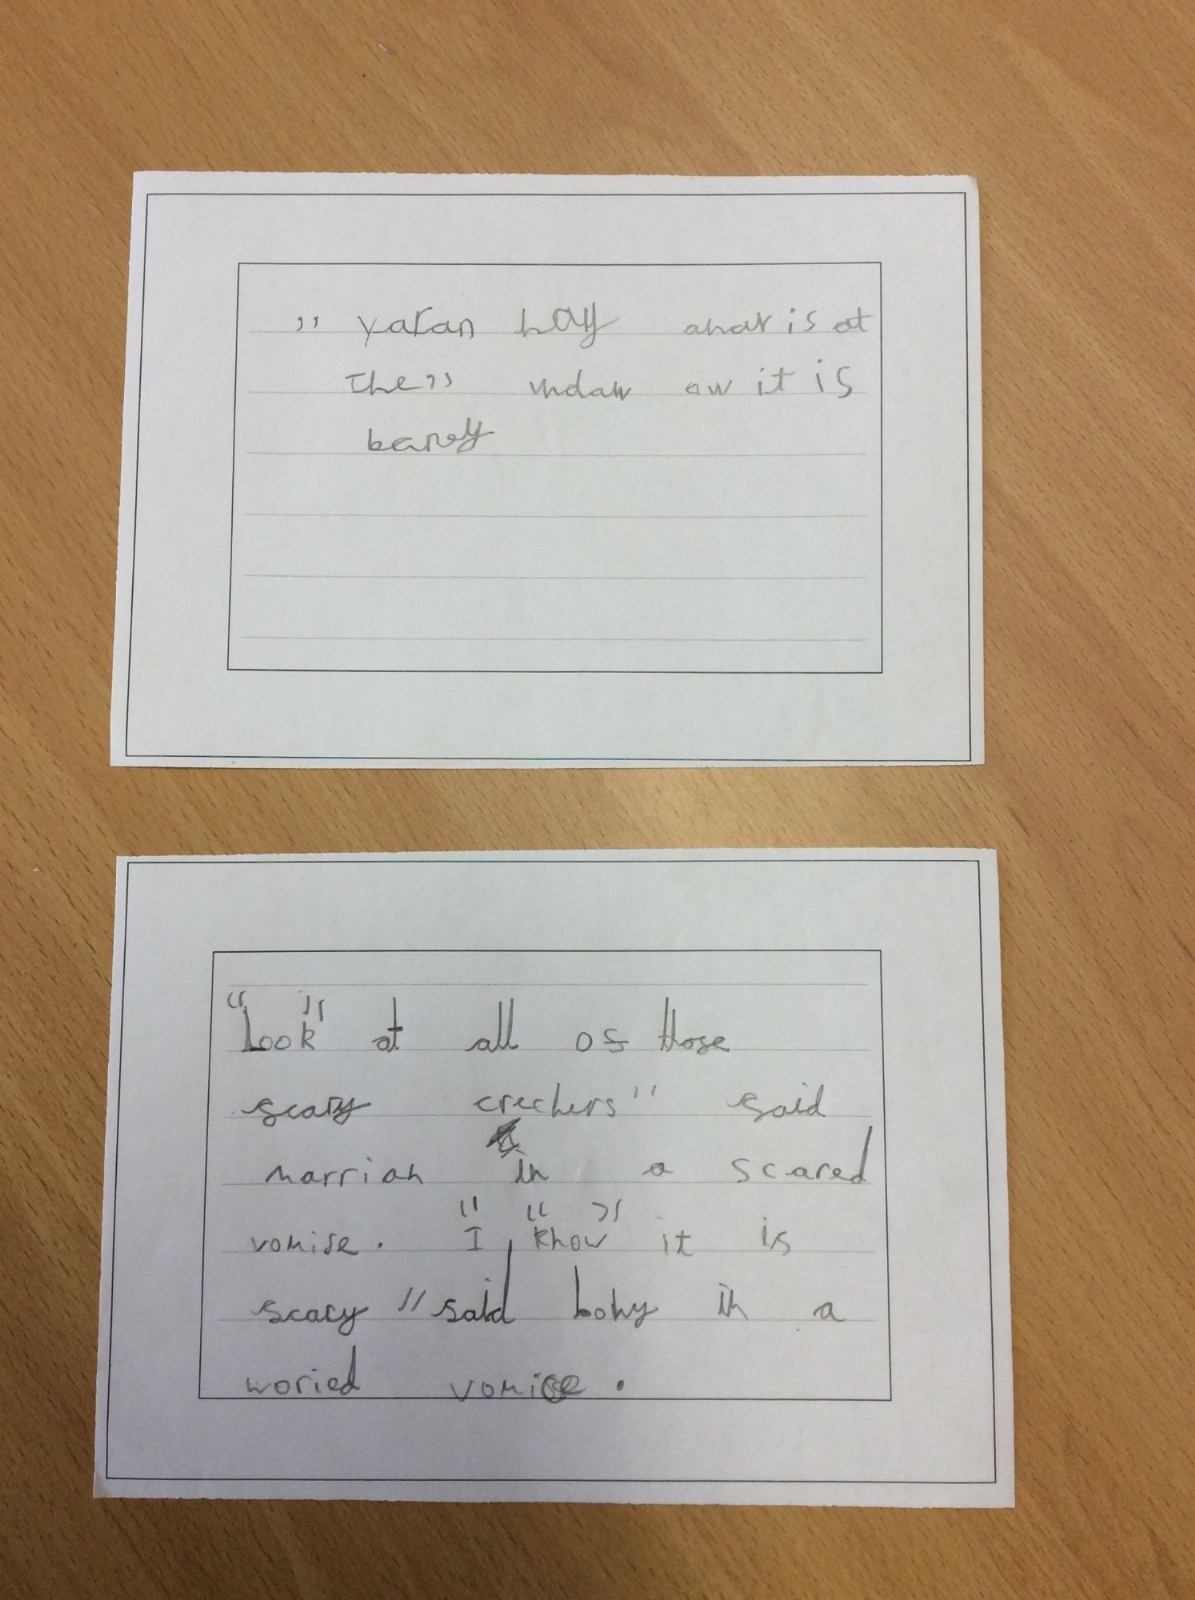 " yaran hay anar is at
the" undaw aw it is
barey
"Look" at all of those
scary crechers" said
marriah in a scared
vomise. "I "know" it is
scary "said bohy in a
woried vomice.